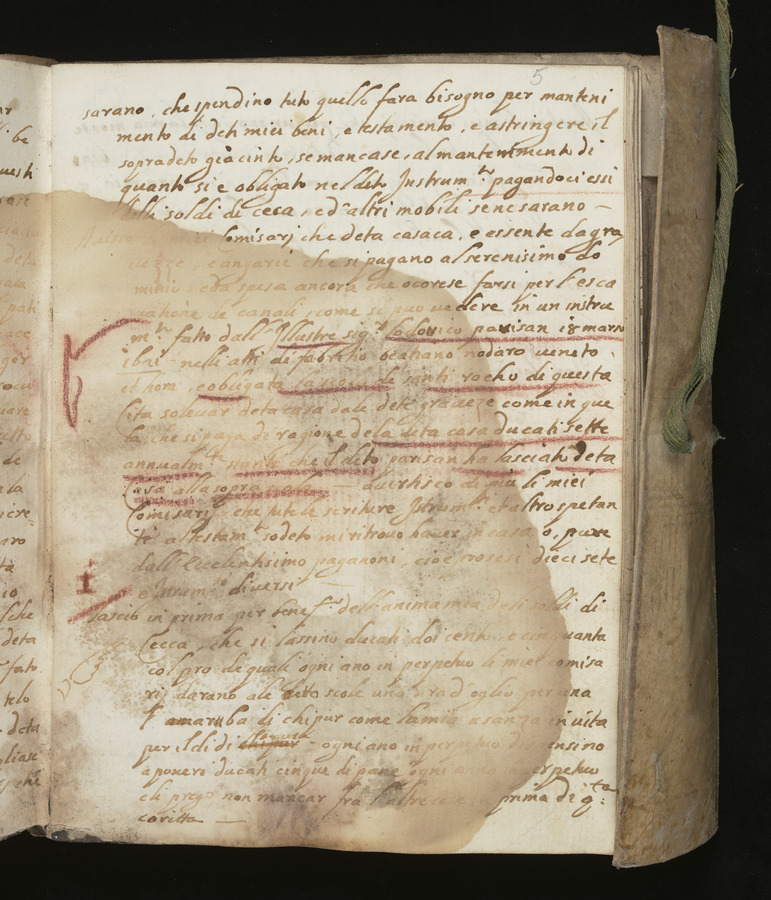 5
sarano, che spendino tuto quello fara bisogno per manteni
mento di deti miei beni, e testamento, e astringere il
sopradeto giacinto, se mancase, al mantenimento di
quanto si e obligato nel dito Instrum.to pagandoci essi
delli soldi di ceca, ed'altri mobili se ne sarano —
Comisarj che deta casa ca, e essente da gra
veze, e angarie che si pagano al serenisimo do
minio, e da spesa ancora che ocorese farsi per l'esca
vatione de canali, come si puo vedere in un instru
m.to fato dall'Illustre sig.r Lodovico parisan 18 marzo
nelli atti di fabritio beatiano nodaro veneto
et hora, e obligata la scola de santi rocho di questa
cita solevar deta casa dale dete graveze come in que
la, che si paga di ragione dela dita casa ducati sette
annualm.te che il dito parisan ha lasciato deta
casa alla sopra scola — Avertisco di piu li miei
Comisarij, che tute le scriture Istrum.ti et altro spetan
te al testam.to sodeto mi ritrovo haver in casa o, pure
dall'Eccelentissimo paganoni, cioe prosesi dieci sete
e Instrum.ti diversi —
Lascio in prima per benef.o dell'anima mia de si soldi di
Cecca, che si lassino ducati doi cento e cinquanta
col pro de quali ogni ano in perpetuo li miei comisa
rj darano ale dito scole una d'oglio per una
di chipur come la mia usanza in vita
per il di di chipur - ogni ano in perpetuo dispensino
a poveri ducati cinque di pane ogni ano in perpetuo
eli prego non mancar fra l'altre cose in prima di q.ta
coritta —